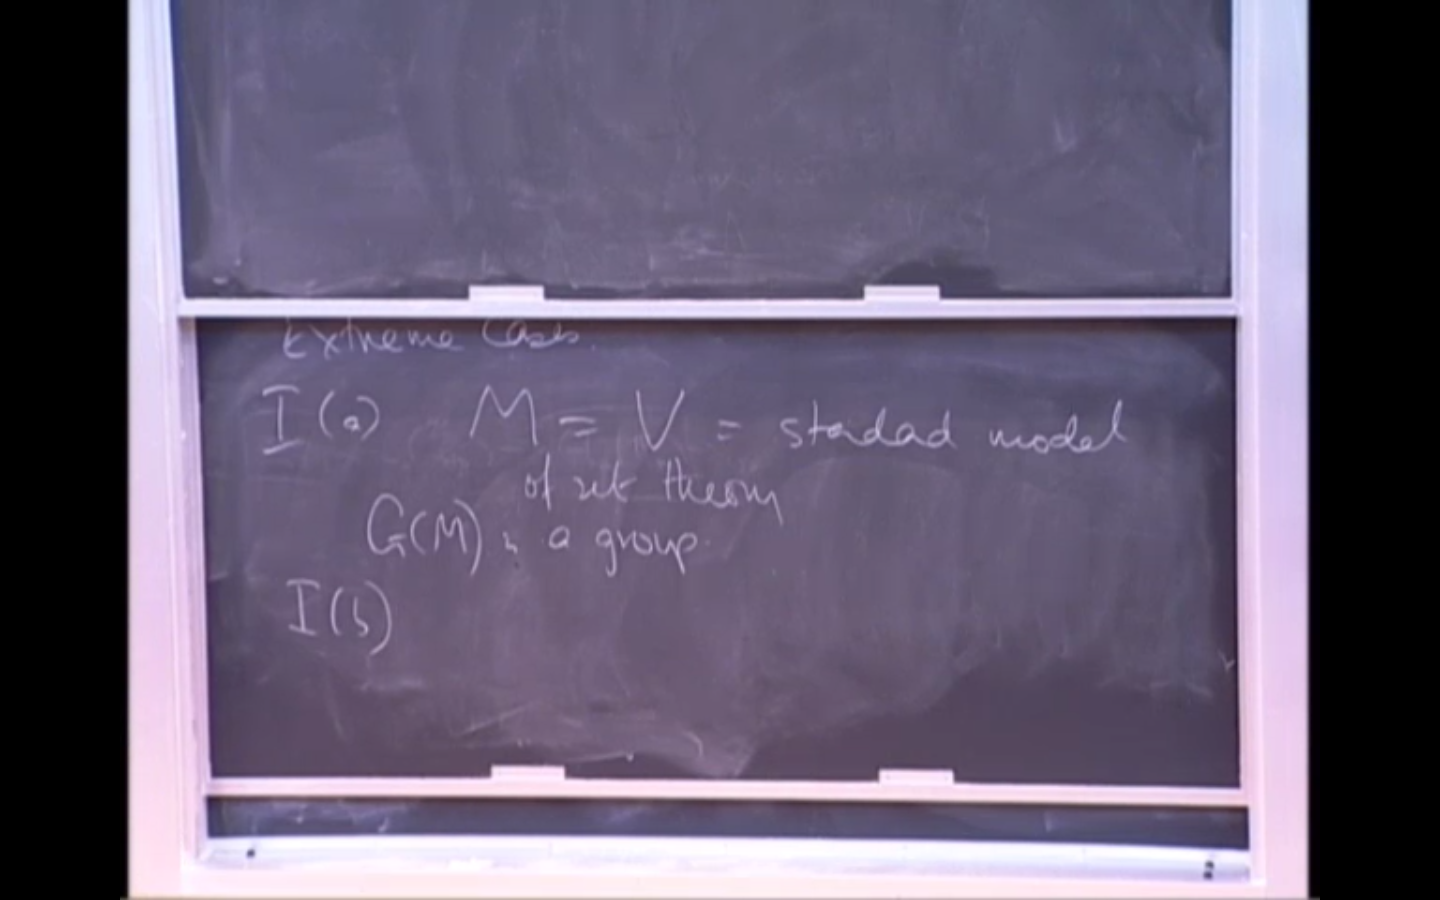 Extreme Cases.
I (a) M = V = stardad model
of set theory
G(M) is a group.
I (b)